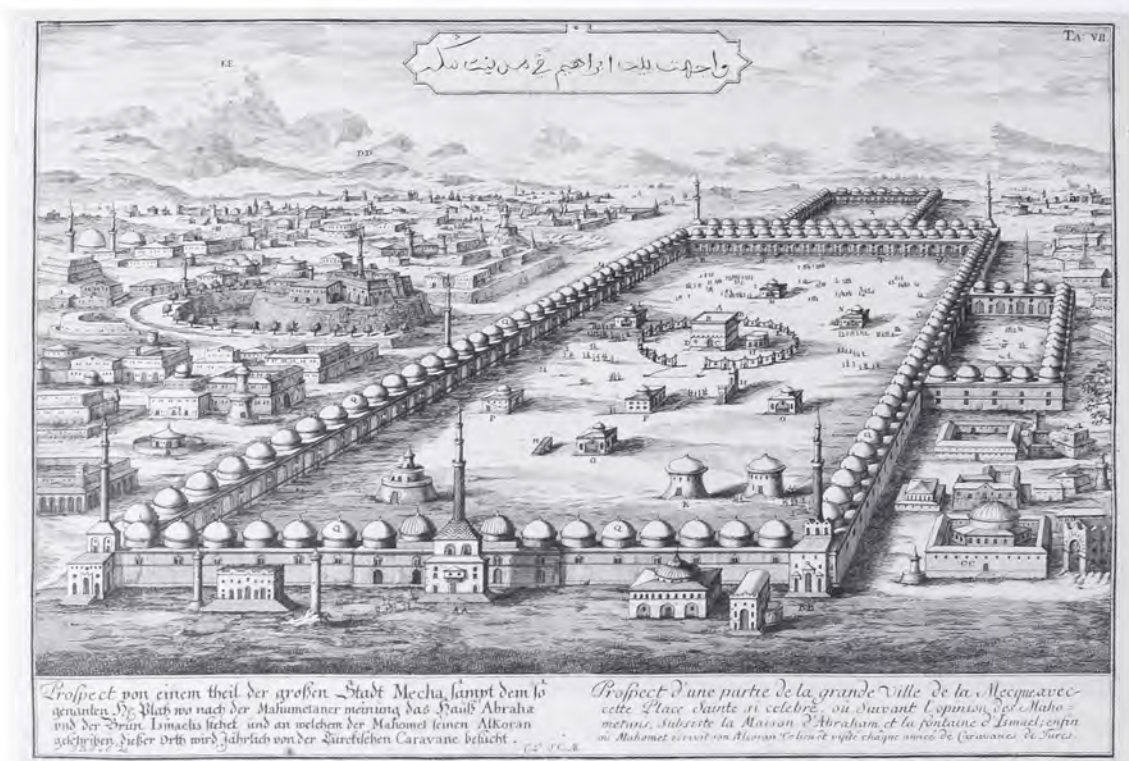 TA. VII
واجهت بيت ابراهيم في مدينت مكه
E.E.
D.D.
X
A
P
F
G
H
Q
R
Q
Q
Q
CC
AA
BB
Prospect von einem theil der großen Stadt Mecha sampt dem so
genanten Hg. Platz wo nach der Mahumetaner meinung das Hauß Abrahæ
und der Brunē Ismaelis stehet und an welchem der Mahomet seinen Alkoran
geschriben. Dießer Orth wird Jährlich von der Türckischen Caravane besucht.
Prospect d'une partie de la grande Ville de la Mecque avec
cette Place Sainte si celebre, où Suivant l'opinion des Maho-
metans, Subsiste la Maison d'Abraham et la fontaine d'Ismael; enfin
où Mahomet ecrivit son Alcoran. Ce lieu est visité chaque année de Caravanes de Turcs.